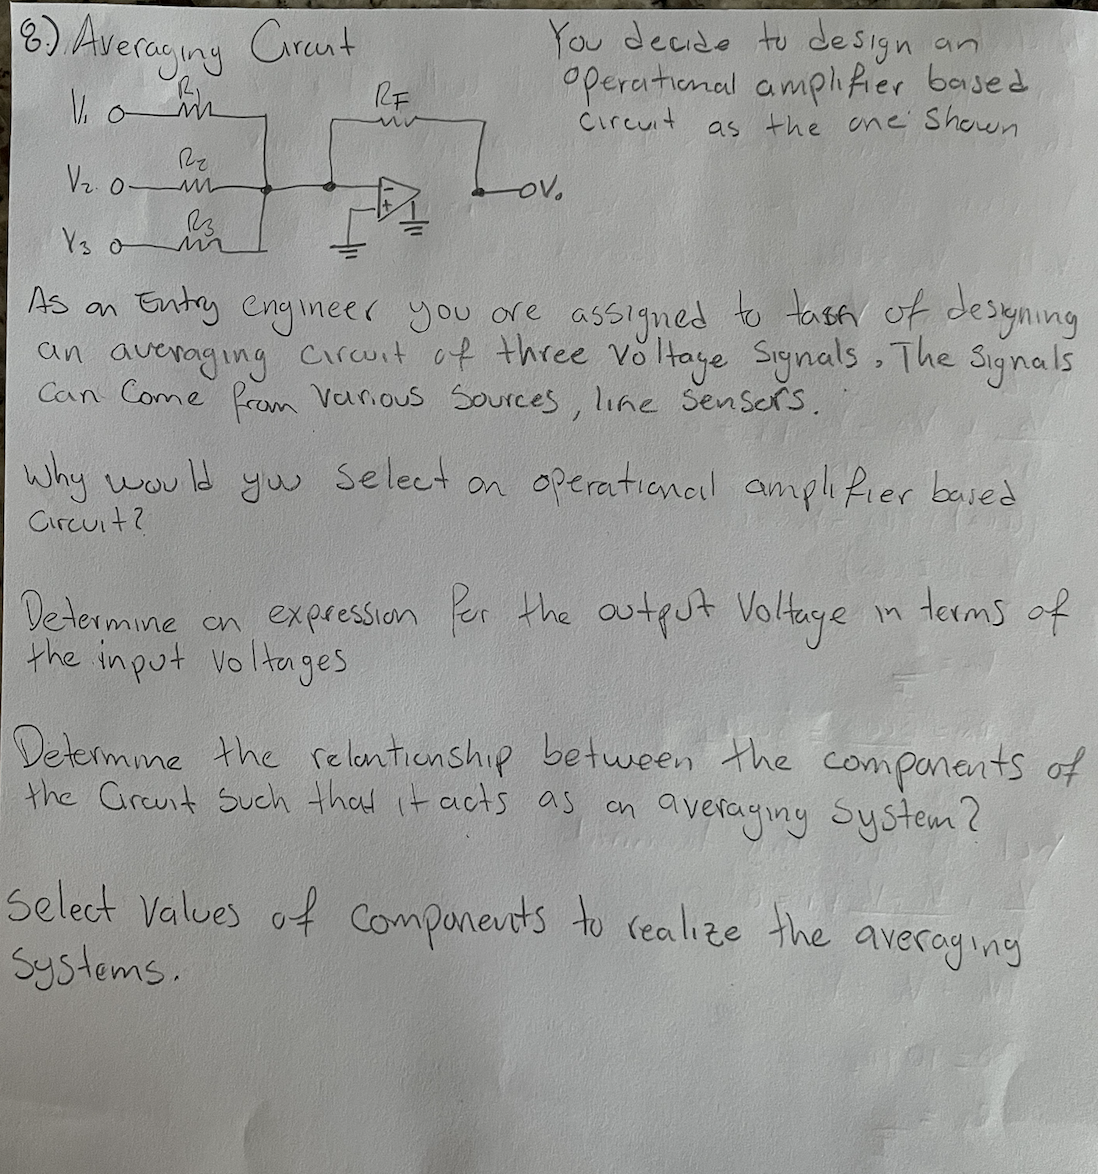 8.) Averaging Circut
You decide to design an
operational amplifier based
circuit as the one shown
R1
RF
V1
R2
V2
-
+
Vo
R3
V3
As an Entry engineer you are assigned to task of designing
an averaging circuit of three voltage signals. The signals
can come from various sources, like sensors.
Why would you select an operational amplifier based
circuit?
Determine an expression for the output voltage in terms of
the input voltages
Determine the relantionship between the components of
the Circuit such that it acts as an averaging system?
Select values of components to realize the averaging
systems.